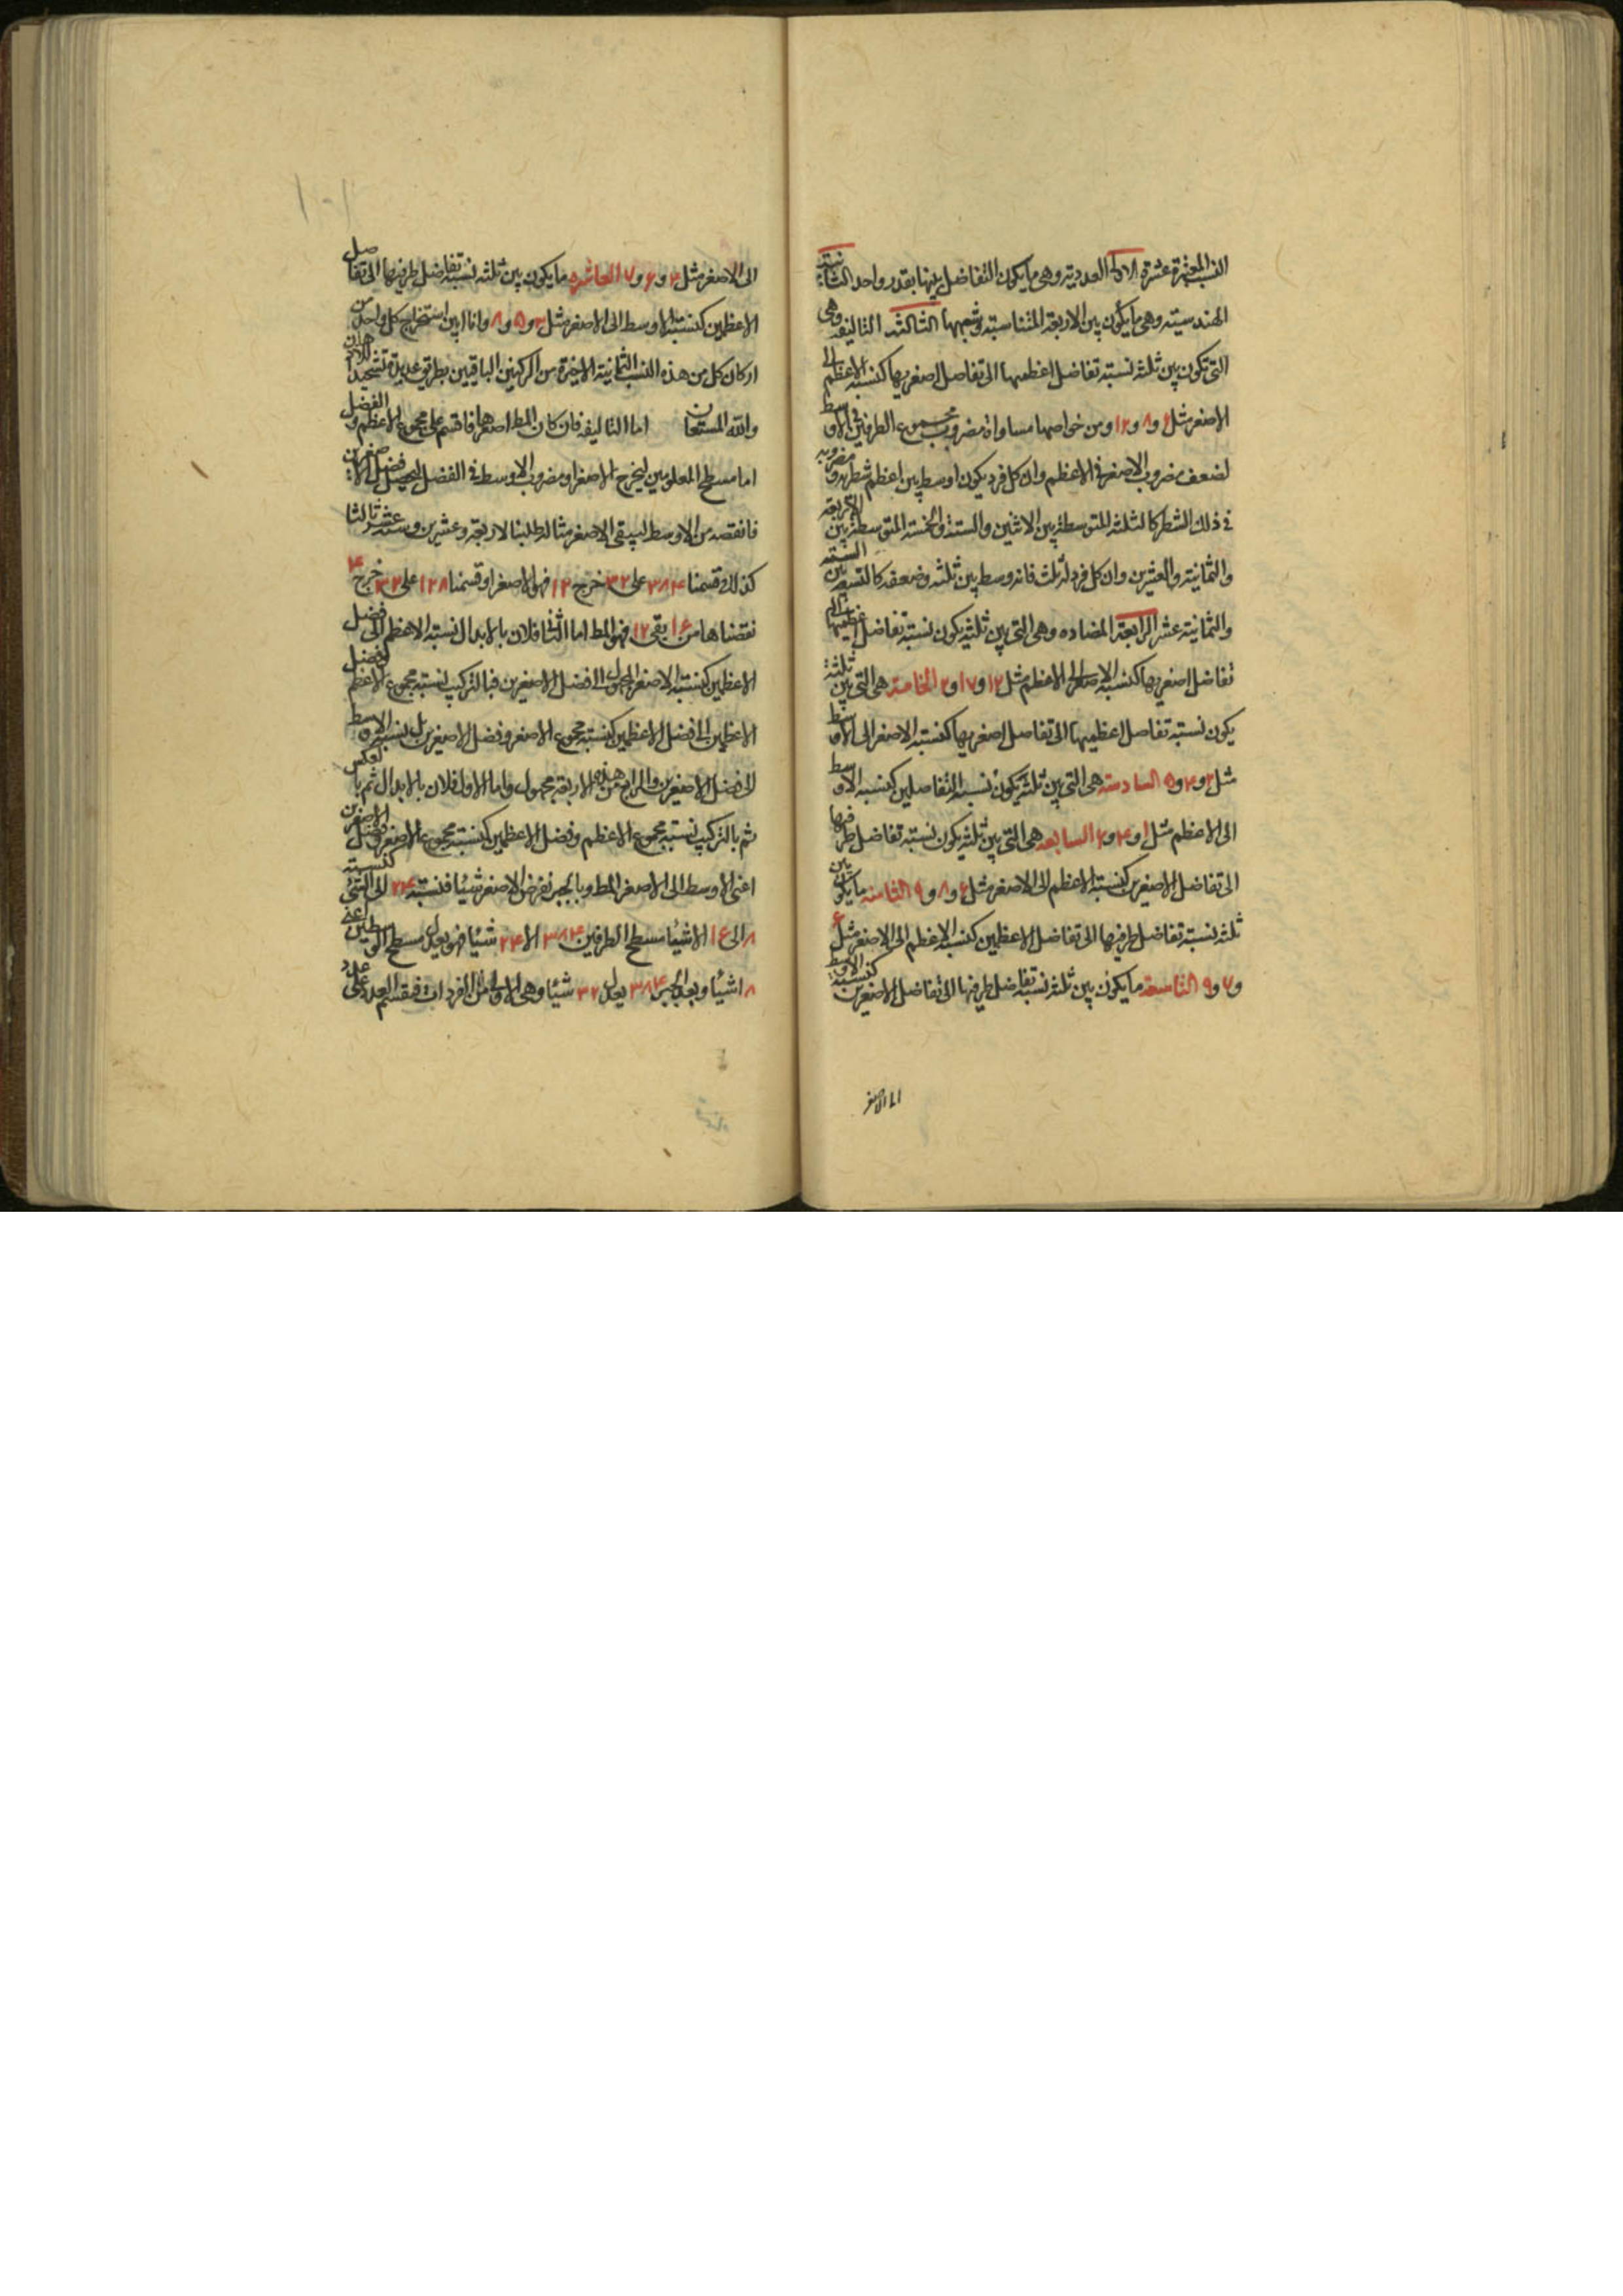 النسب المعتبرة عشرة الاولى العددية وهى ما يكون التفاضل بينها بقدر واحد الثانية
الهندسية وهى ما يكون بين الاربعة المتناسبة وشبهها الثالثة التاليفية وهى
التى تكون بين ثلثة نسبة تفاضل اعظمها الى تفاضل اصغريها كنسبة الاعظم الى
الاصغر مثل ۶ و ۸ و ۱۲ ومن خواصها مساواة مضروب مجموع الطرفين فى الاوسط
لضعف مضروب الاصغر فى الاعظم وان كل فرد يكون اوسط بين اعظم شطريه ومضروبه
فى ذلك الشطر كالثلثة المتوسطة بين الاثنين والستة والخمسة المتوسطة بين الاربعة
والثمانية والعشرين وان كل فرد له ثلث فانه وسط بين ثلثيه وضعفه كالتسعة بين الستة
والثمانية عشر الرابعة المضادة وهى التى بين ثلثة يكون نسبة تفاضل اعظميها الى
تفاضل اصغريها كنسبة الاصغر الى الاعظم مثل ۱۲ و ۱۷ و ۲ الخامسة هى التى بين ثلثة
يكون نسبة تفاضل اعظميها الى تفاضل اصغريها كنسبة الاصغر الى الاوسط
مثل ۲ و ۴ و ۵ السادسة هى التى بين ثلثة يكون نسبة التفاضلين كنسبة الاوسط
الى الاعظم مثل ۱ و ۴ و ۶ السابعة هى التى بين ثلثة يكون نسبة تفاضل طرفيها
الى تفاضل الاصغرين كنسبة الاعظم الى الاصغر مثل ۶ و ۸ و ۹ الثامنة ما يكون بين
ثلثة نسبة تفاضل طرفيها الى تفاضل الاعظمين كنسبة الاعظم الى الاصغر مثل ۶
و ۷ و ۹ التاسعة ما يكون بين ثلثة نسبة تفاضل طرفيها الى تفاضل الاصغرين كنسبة الاوسط
الى الاصغر
الى الاصغر مثل ۴ و ۶ و ۷ العاشرة ما يكون بين ثلثة نسبة تفاضل طرفيها الى تفاضل
الاعظمين كنسبة الاوسط الى الاصغر مثل ۳ و ۵ و ۸ وانا ابين استخراج كل واحد من
اركان كل من هذه النسب الثمانية الاخيرة من الركنين الباقيين بطرق عديدة تشحيذا للاذهان
والله المستعان اما التاليفية فان كان المط اصغرها فاقسم على مجموع الاعظم والفضل
اما مسطح المعلومين ليخرج الاصغر او مضروب الاوسط فى الفضل ليحصل فضل الاصغرين
فانقصه من الاوسط ليبقى الاصغر مثاله طلبنا لاربعة وعشرين وستة عشر ثالثا
كذلك قسمنا ۳۸۴ على ۳۲ خرج ۱۲ فهو الاصغر او قسمنا ۱۲۸ على ۳۲ خرج ۴
نقصناها من ۱۶ بقى ۱۲ فهو المط اما الثانى فلان بالابدال نسبة الاعظم الى فضل
الاعظمين كنسبة الاصغر المجهول الى فضل الاصغرين فبالتركيب نسبة مجموع الاعظم وفضل
الاعظمين الى فضل الاعظمين كنسبة مجموع الاصغر وفضل الاصغرين بل نسبة الاوسط
الى فضل الاصغرين والرابع من هذه الاربعة مجهول واما الاول فلان بالابدال ثم بالعكس
ثم بالتركيب نسبة مجموع الاعظم وفضل الاعظمين كنسبة مجموع الاصغر وفضل الاصغرين
اعنى الاوسط الى الاصغر المط وبالجبر نفرض الاصغر شيئا فنسبة ۲۴ الى الشئ كنسبة
۸ الى ۱۶ الا شيئا مسطح الطرفين ۳۸۴ الا ۲۴ شيئا فهو يعدل مسطح الوسطين اعنى
۸ اشياء وبعد الجبر ۳۸۴ يعدل ۳۲ شيئا وهى الاولى من المفردات فيقسم العدد على عدد